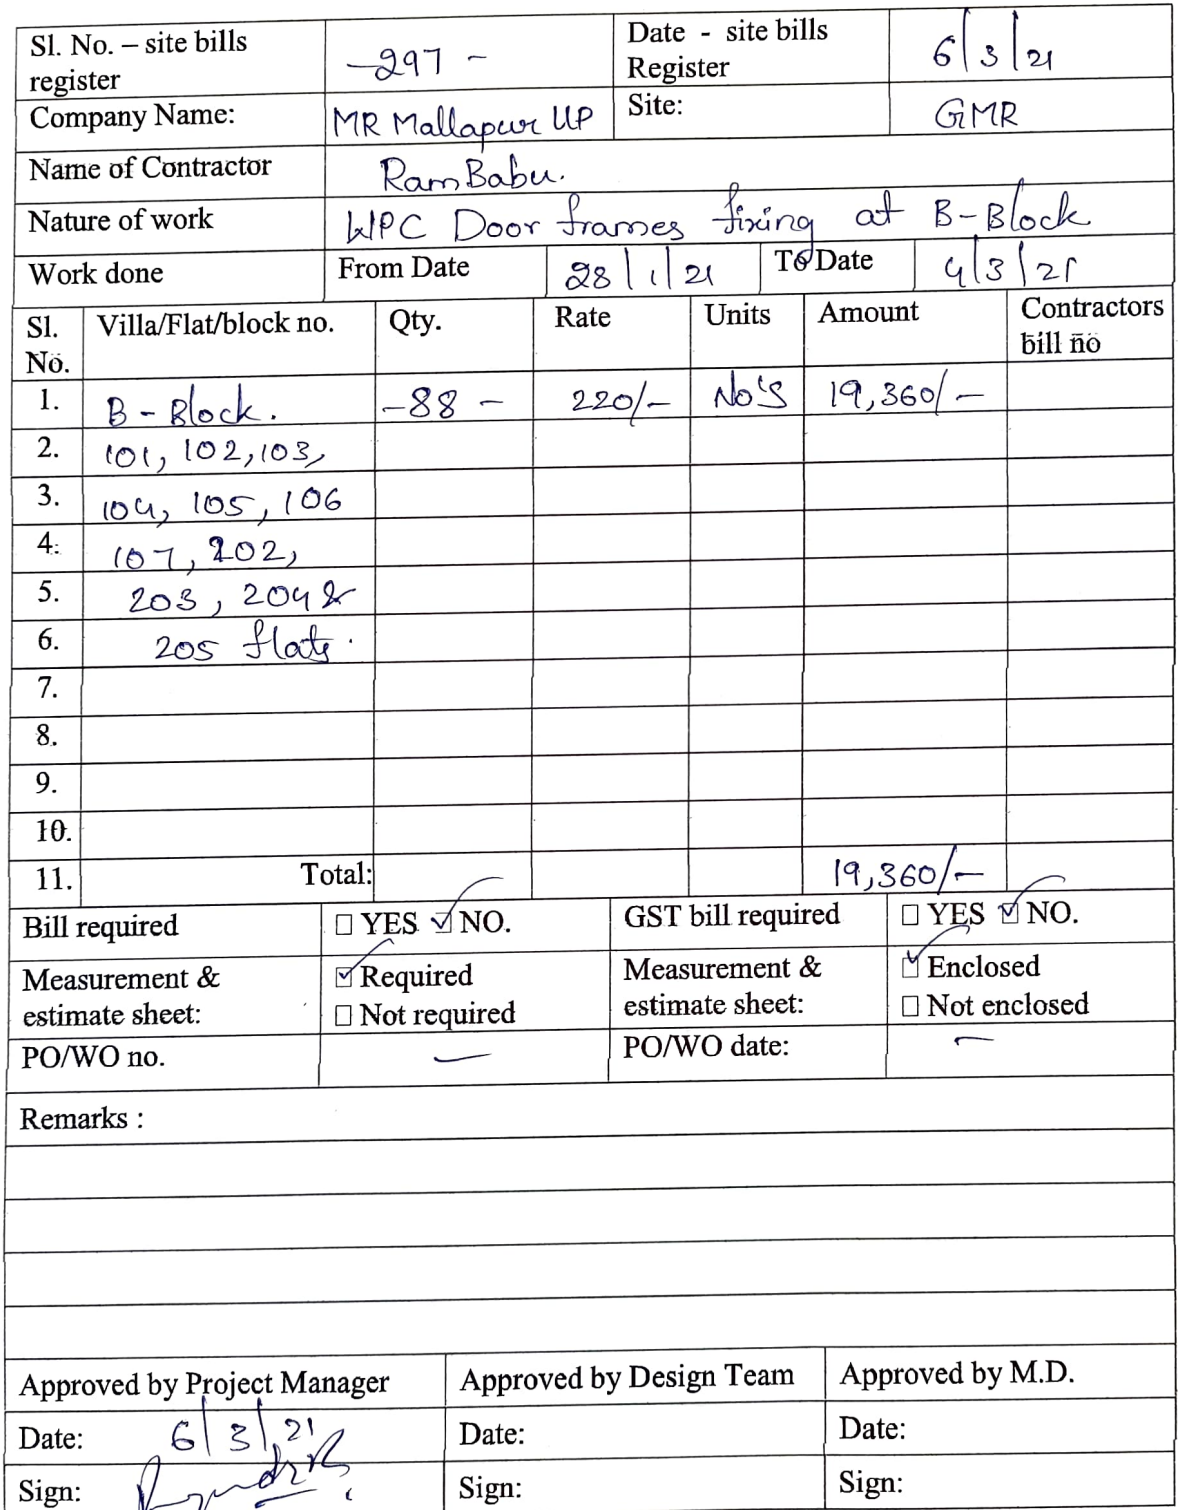 Sl. No. – site bills register -297- Date - site bills Register 6/3/21
Company Name: MR Mallapur UP Site: GMR
Name of Contractor RamBabu.
Nature of work WPC Door frames fixing at B-Block
Work done From Date 28/1/21 To Date 4/3/21
Sl. No. Villa/Flat/block no. Qty. Rate Units Amount Contractors bill no
1. B-Block. -88- 220/- No's 19,360/-
2. 101, 102, 103,
3. 104, 105, 106
4. 107, 202,
5. 203, 204 &
6. 205 flats.
7.
8.
9.
10.
11. Total: 19,360/-
Bill required ☐ YES ☑ NO. GST bill required ☐ YES ☑ NO.
Measurement & estimate sheet: ☑ Required ☐ Not required Measurement & estimate sheet: ☑ Enclosed ☐ Not enclosed
PO/WO no. — PO/WO date: –
Remarks :
Approved by Project Manager Approved by Design Team Approved by M.D.
Date: 6/3/21 Date: Date:
Sign: Sign: Sign: